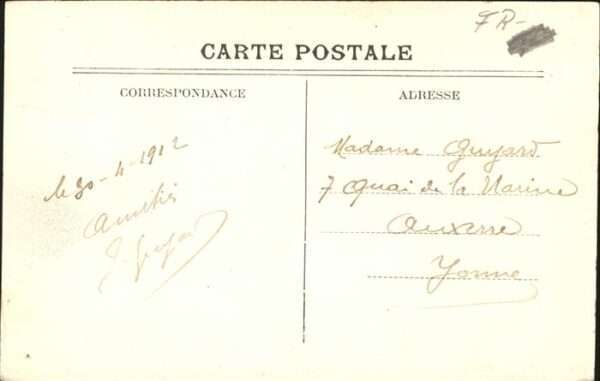 FR-
CARTE POSTALE
CORRESPONDANCE
ADRESSE
le 30-4-1912
Amitiés
Madame Guyard
7 Quai de la Marine
Auxerre
Yonne